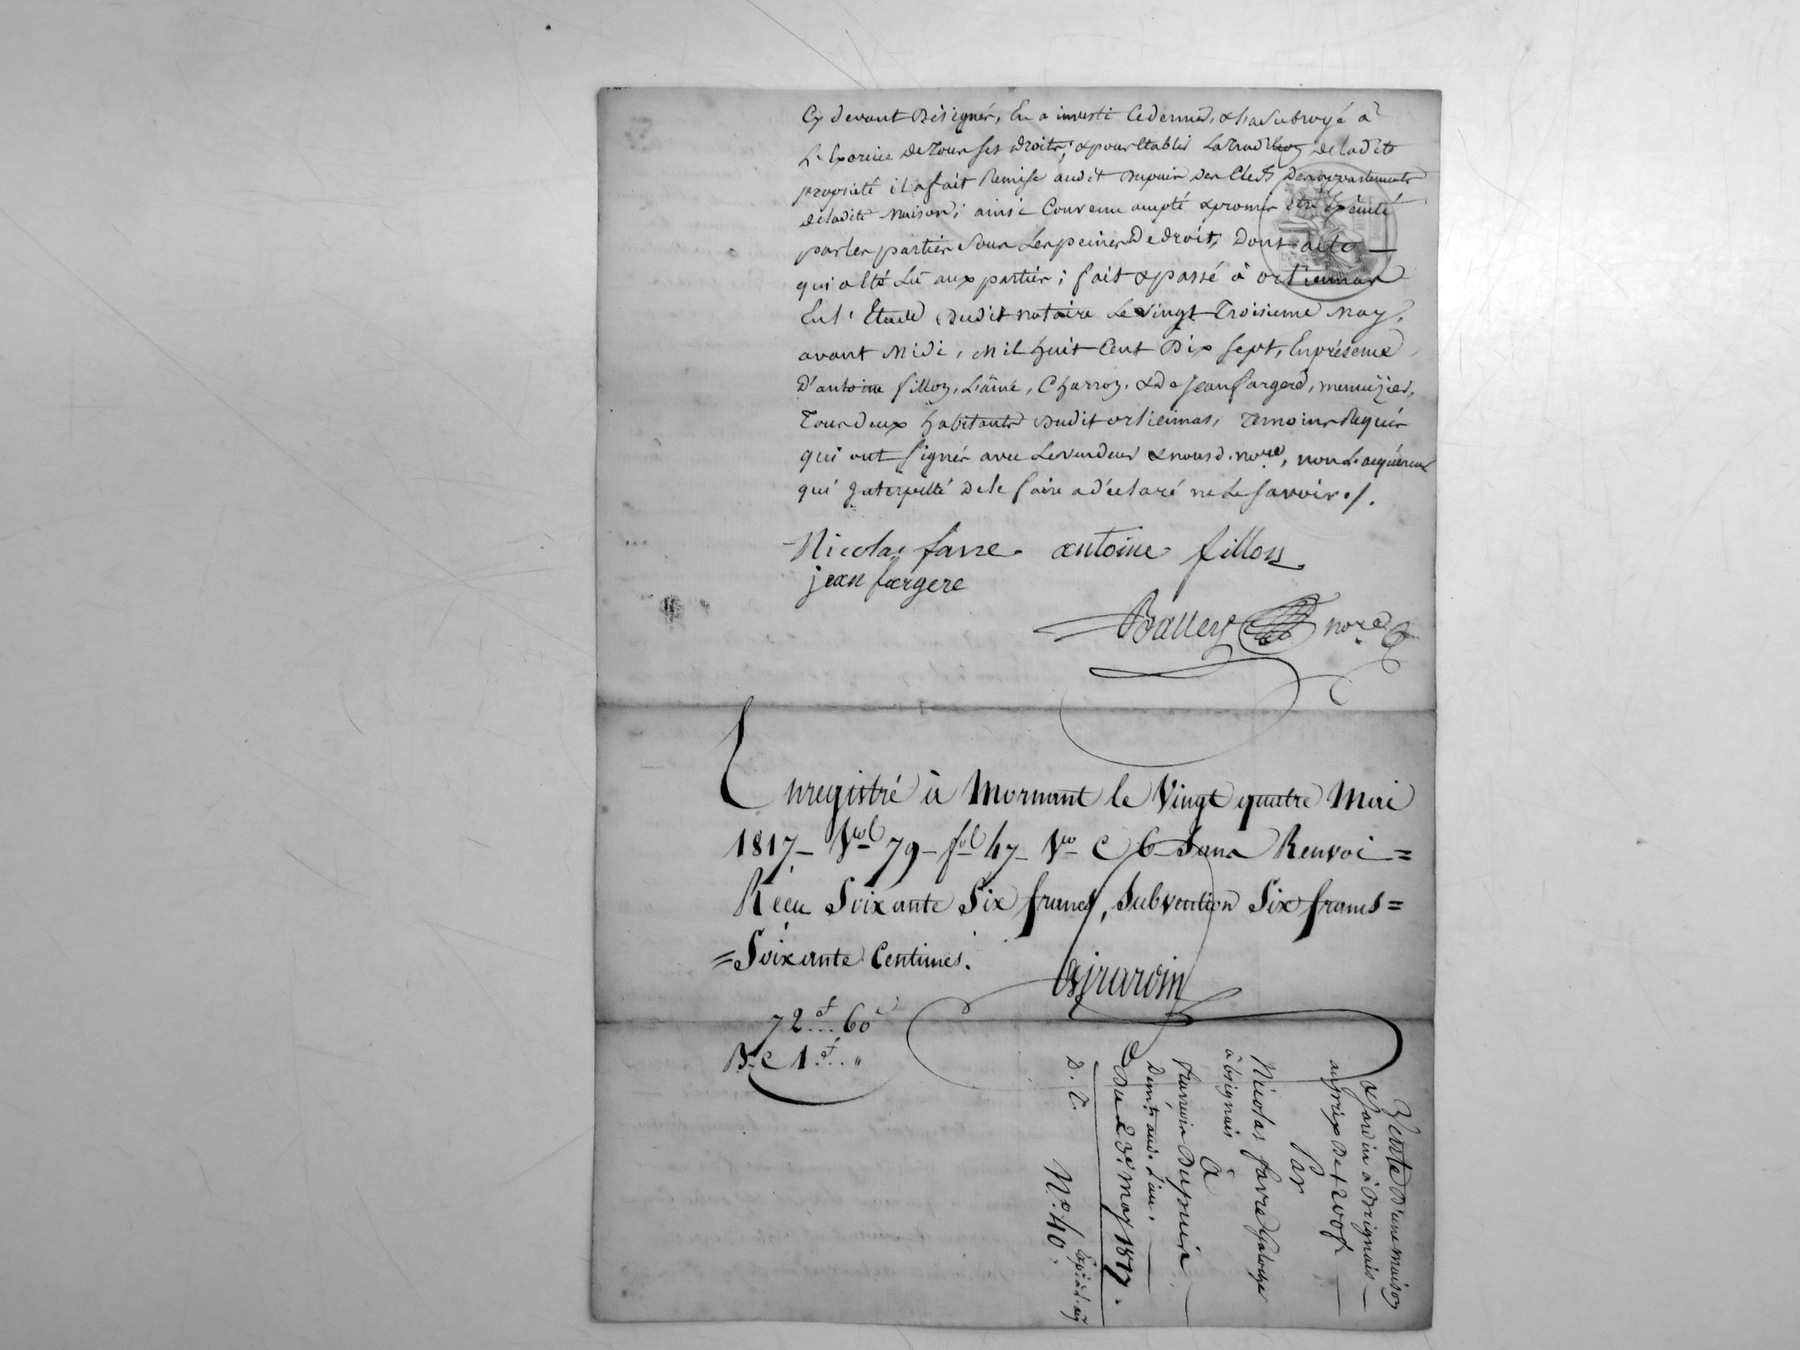 Cy devant Désignés, En a investi Ledernier, & l'a subrogé à
L'Exercice De tous ses droits, & pour Etablir La tradition de ladite
propriété il a fait Remise audit Dupuis Des Clefs Des appartements
de ladite maison; ainsi Convenu accepté & promis être Exécuté
par les parties sous Les peines De droit, Dont acte —
qui a été Lu aux parties; fait & passé à orlienas
En l'Etude dudit notaire Le vingt Troisieme may,
avant Midi, Mil huit Cent Dix sept, En présence
D'antoine fillon, L'ainé, Charron, & De jean fargere, menuizier,
Tous deux habitants Dudit orlienas, témoins Requis
qui ont signés avec Le vendeur & nous d. no.re, non L'acquéreur
qui Interpellé de le faire a déclaré ne Le savoir ./.
Nicolas favre. antoine fillon
jean fargere
Balley no.re
Enregistré à Mornant le Vingt quatre Mai
1817 - Vol 79 - fol 47 - Vo C 6 Sans Renvoi =
Réçu Soixante Six francs, Subvention Six francs =
= Soixante Centimes.
Girardin
72 f... 60 c
B. C 1 f... "
Vente D'une maison
& Jardin à Brignais —
au prix De 1200 f. —
Par
Nicolas favre
à brignais
à
françois Dupuis —
Dem.t aud. Lieu. —
Du 23.e may 1817.
D. C.
N.o 40.